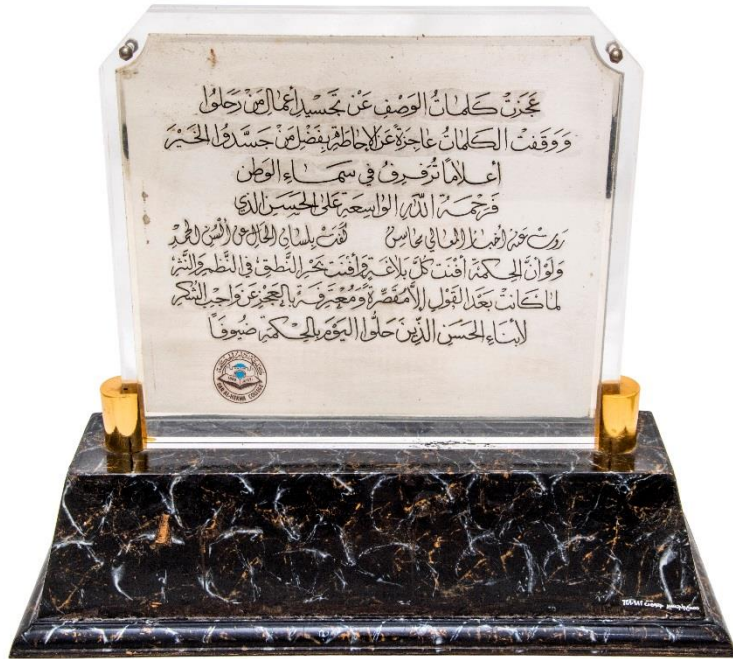 عَجَزَتْ كَلِمَاتُ الوَصْفِ عَنْ تَجْسِيدِ أَعْمَالِ مَنْ رَحَلُوا
وَوَقَفَتْ الكَلِمَاتُ عَاجِزَةً عَنْ الإِحَاطَةِ بِفَضْلِ مَنْ جَسَّدُوا الخَيْرَ
أَعْلَامًا تُرَفْرِفُ فِي سَمَاءِ الوَطَنِ
فَرَحْمَةُ اللّٰهِ الوَاسِعَةِ عَلَى الحَسَنِ الذي
رَوَتْ عَنْهُ أَخْبَارَ المَعَالِي مَحَاسِنٌ كَفَتْ بِلِسَانِ الحَالِ عَنْ أَلْسُنِ الحَمْدِ
وَلَوْ أَنَّ الحِكْمَةَ أَفْنَتْ كُلَّ بَلَاغَةٍ وَأَفْنَتْ بَحْرَ النُّطْقِ فِي النَّظْمِ وَالنَّثْرِ
لَمَا كَانَتْ بَعْدَ القَوْلِ إِلَّا مُقَصِّرَةً وَمُعْتَرِفَةً بِالعَجْزِ عَنْ وَاجِبِ الشُّكْرِ
لِأَبْنَاءِ الحَسَنِ الَّذِينَ حَلُّوا اليَوْمَ بِالحِكْمَةِ ضُيُوفًا
DAR AL-HEKMA COLLEGE